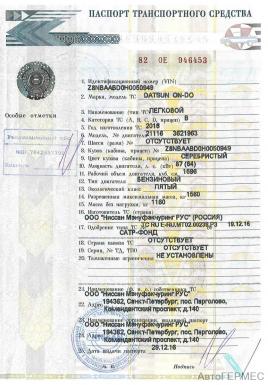 ПАСПОРТ ТРАНСПОРТНОГО СРЕДСТВА
82 ОЕ 946453
Особые отметки
1. Идентификационный номер (VIN) Z8NBAABD0H0050949
2. Марка, модель ТС DATSUN ON-DO
3. Наименование (тип ТС) ЛЕГКОВОЙ
4. Категория ТС (А, В, С, D, прицеп) В
5. Год изготовления ТС 2016
6. Модель, № двигателя 21116 3621963
7. Шасси (рама) № ОТСУТСТВУЕТ
8. Кузов (кабина, прицеп) № Z8NBAABD0H0050949
9. Цвет кузова (кабины, прицепа) СЕРЕБРИСТЫЙ
10. Мощность двигателя, л. с. (кВт) 87 (64)
11. Рабочий объем двигателя, куб. см 1596
12. Тип двигателя БЕНЗИНОВЫЙ
13. Экологический класс ПЯТЫЙ
14. Разрешенная максимальная масса, кг 1560
15. Масса без нагрузки, кг 1160
16. Изготовитель ТС (страна)
ООО "Ниссан Мэнуфэкчуринг РУС" (РОССИЯ)
17. Одобрение типа ТС № ТС RU E-RU.MT02.00238.P3 19.12.16
САТР-ФОНД
18. Страна вывоза ТС ОТСУТСТВУЕТ
19. Серия, № ТД, ТПО ОТСУТСТВУЕТ
20. Таможенные ограничения НЕ УСТАНОВЛЕНЫ
ООО "Ниссан Мэнуфэкчуринг РУС"
22. Адрес 194362, Санкт-Петербург, пос. Парголово,
Комендантский проспект, д.140
ООО "Ниссан Мэнуфэкчуринг РУС"
24. Адрес 194362, Санкт-Петербург, пос. Парголово,
Комендантский проспект, д.140
25. Дата выдачи паспорта 29.12.16
М. П. Подпись
АвтоГЕРМЕС